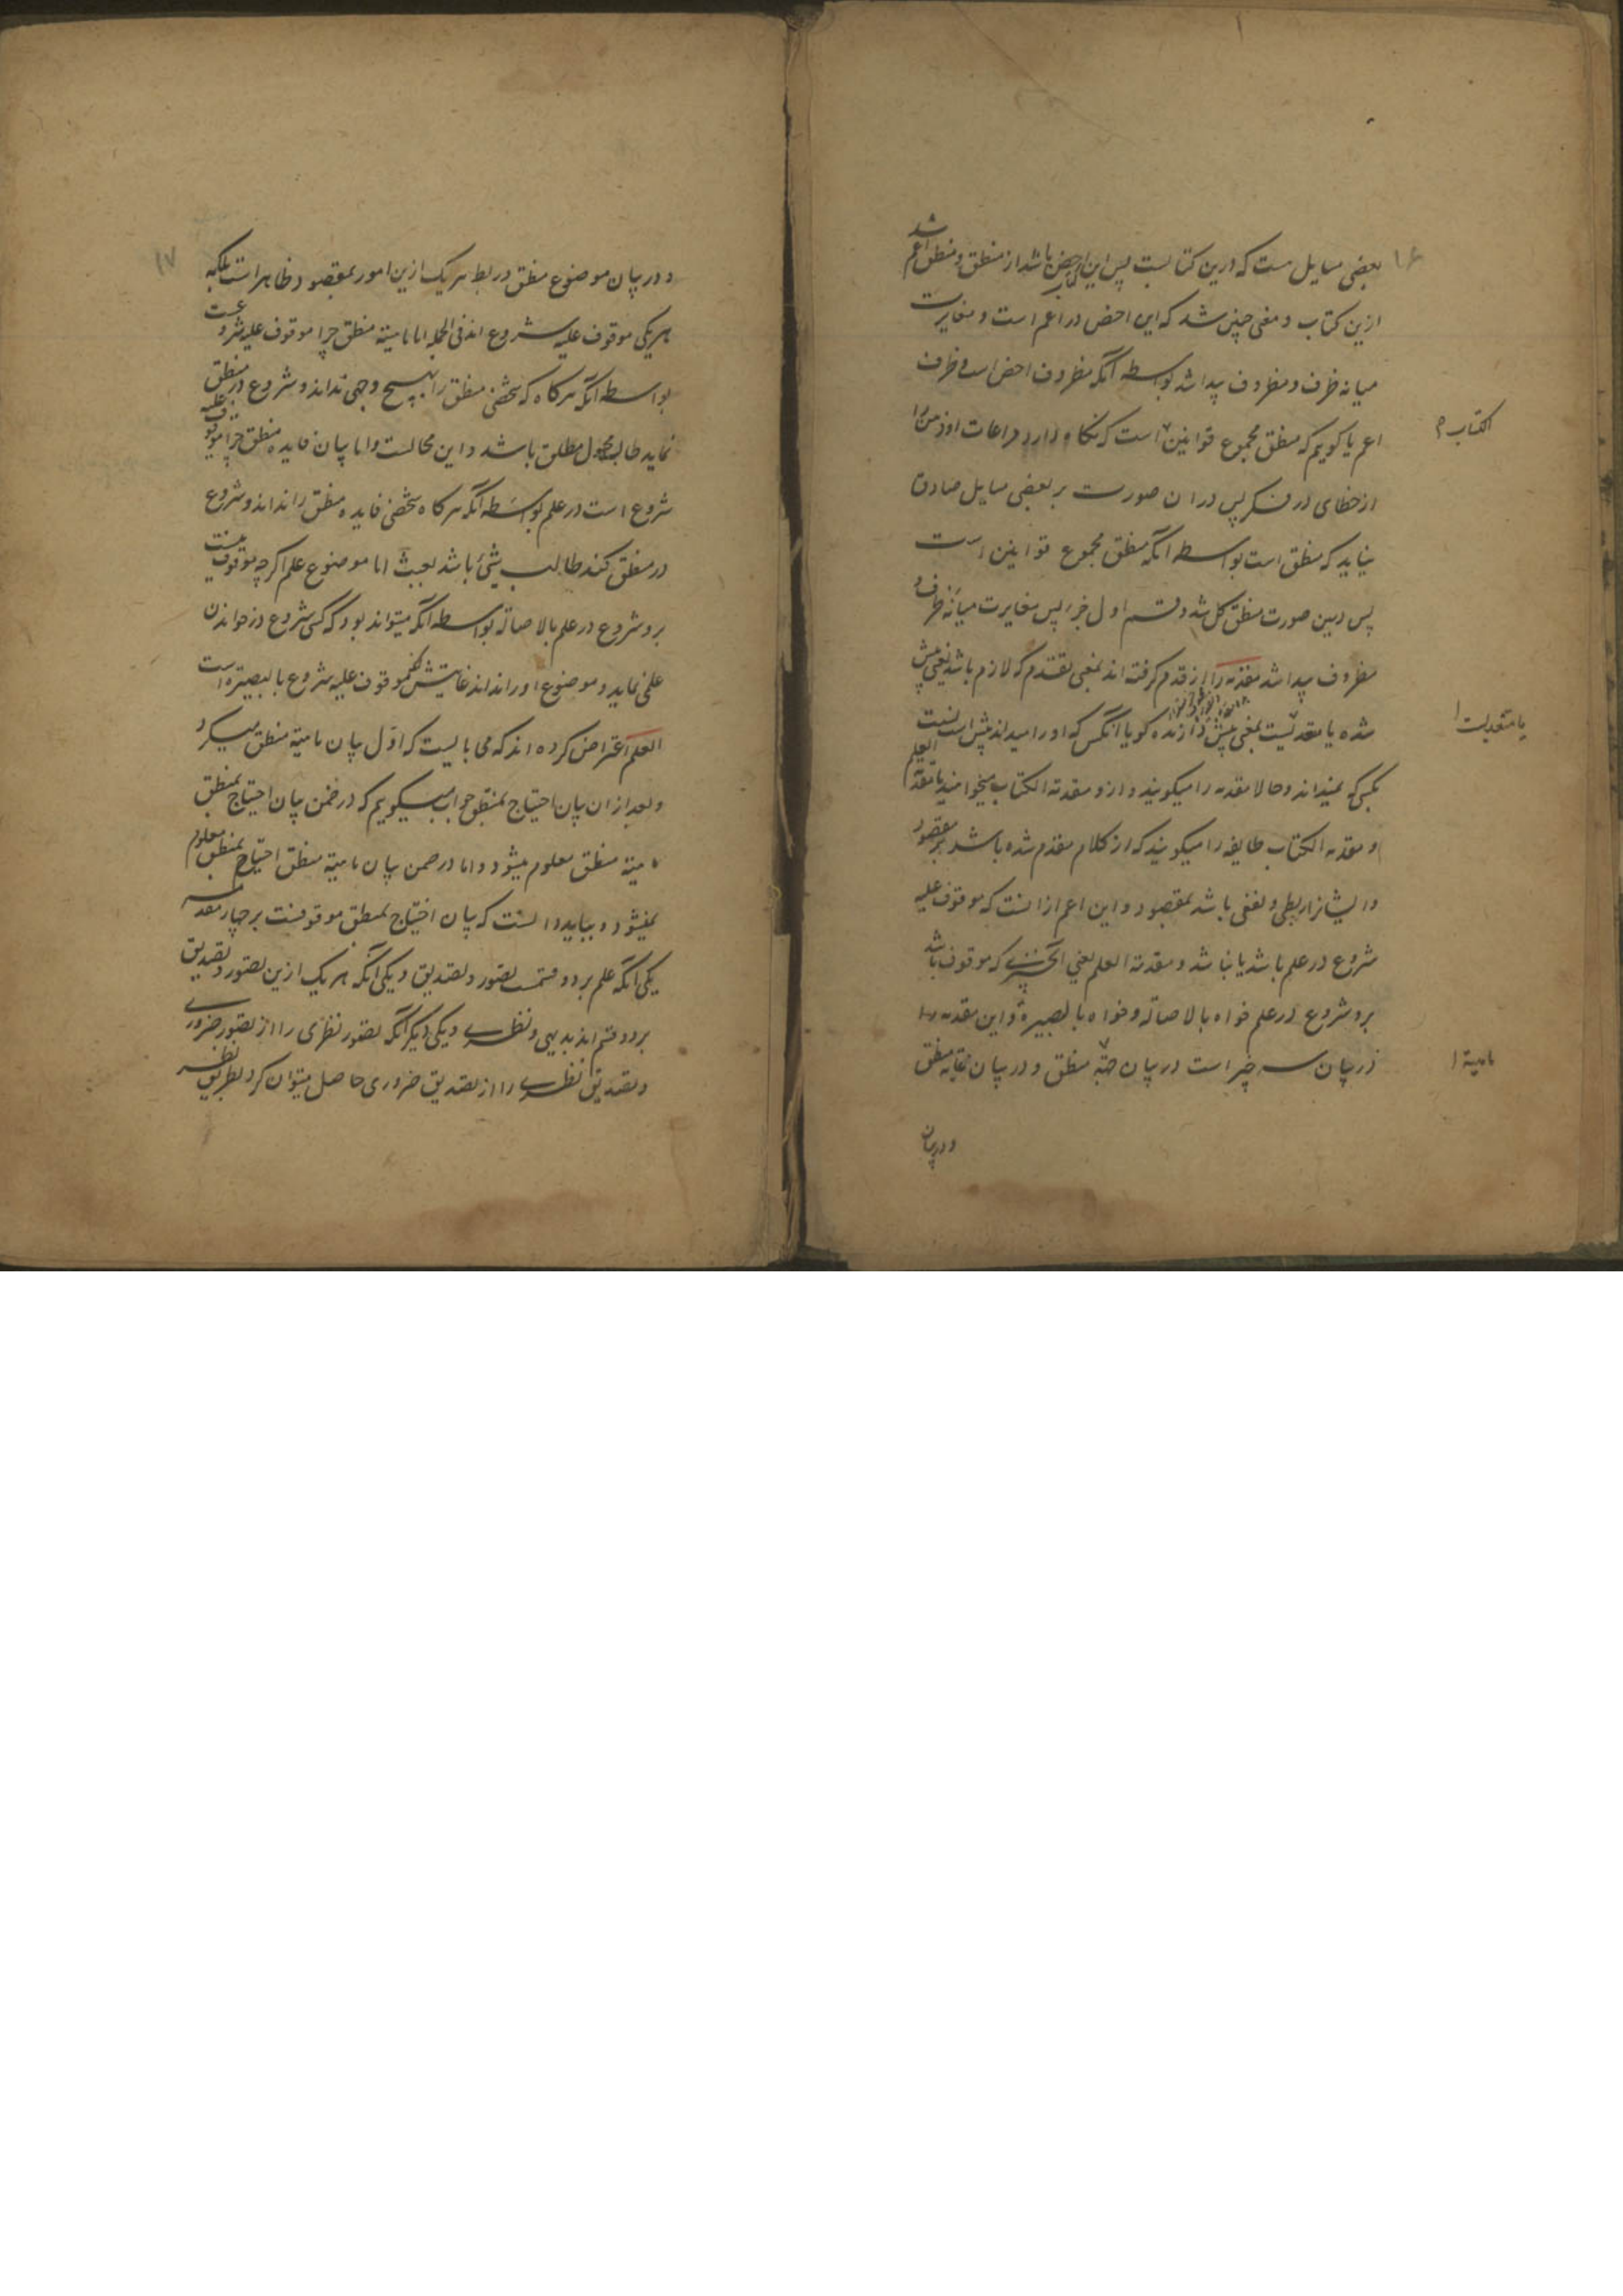 ۱۶
بعضی مسایل ست که درین کتابست پس این کتاب اخص باشد از منطق و منطق اعم باشد
ازین کتاب و معنی چنین شد که این اخص در اعم است و مغایرت
میانه ظرف و مظروف پیدا شد بواسطه آنکه مظروف اخص است و ظرف
اعم یا کویم که منطق مجموع قوانین است که نکاه دارد مراعات او ذهن را
از خطای در فکر پس در ان صورت بر بعضی مسایل صادق
نیاید که منطق است بواسطه انکه منطق مجموع قوانین است
پس درین صورت منطق کل شد و قسم اول جزء پس مغایرت میانه ظرف و
مظروف پیدا شد مقدمه را از قدم کرفته اند بمعنی تقدم که لازم باشد یعنی پیش
شده یا متعدیست بمعنی پیش دارنده کویا آنکس که او را میداند پیش است نسبت
بکسی که نمیداند و حالا مقدمه را میکویند و ازو مقدمة الکتاب میخواهند یا مقدمة العلم
و مقدمه الکتاب طایفه را میکویند که از کلام مقدم شده باشد بر مقصود
و ایشانرا ربطی و نفعی باشد بمقصود و این اعم از انست که موقوف علیه
شروع در علم باشد یا نباشد و مقدمة العلم یعنی آنچیزی که موقوف باشد
برو شروع در علم خواه بالاصالة و خواه بالبصیرة و این مقدمه
در بیان سه چیز است در بیان منطق و در بیان غایه منطق
و در بیان
الکتاب
یا متعدیست
ماهیة
۱۷
و در بیان موضوع منطق و ربط هر یک ازین امور بمقصود ظاهر است بلکه
هریکی موقوف علیه شروع اند فی الجمله اما ماهیة منطق چرا موقوف علیه شروعست
بواسطه آنکه هرکاه که شخصی منطق را بهیچ وجهی نداند و شروع در منطق
نماید طالب مجهول مطلق باشد و این محالست و اما بیان فایده منطق چرا موقوف علیه
شروع است در علم بواسطه آنکه هرکاه شخصی فایده منطق را نداند و شروع
در منطق کند طالب شیئ باشد بعبث اما موضوع علم اکرچه موقوف نیست
برو شروع در علم بالاصاله بواسطه آنکه میتواند بود که کسی شروع در خواندن
علمی نماید و موضوع او را نداند غایتش موقوف علیه شروع بالبصیرة است
العلم اعتراض کرده اند که می بایست که اول بیان ماهیة منطق میکرد
و بعد از ان بیان احتیاج بمنطق جواب میکویم که در ضمن بیان احتیاج بمنطق
ماهیة منطق معلوم میشود و اما در ضمن بیان ماهیة منطق احتیاج بمنطق معلوم
نمیشود و بباید دانست که بیان احتیاج بمنطق موقوفست بر چهار مقدمه
یکی آنکه علم بر دو قسمست تصور و تصدیق و یکی آنکه هر یک ازین تصور و تصدیق
بر دو قسم اند بدیهی و نظری و یکی دیکر آنکه تصور نظری را از تصور ضروری
و تصدیق نظری را از تصدیق ضروری حاصل میتوان کرد بطریق نظر